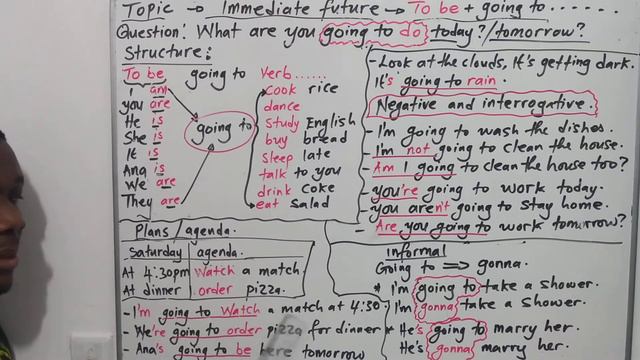 Topic → Immediate future → To be + going to ......
Question: What are you going to do today?/tomorrow?
Structure:
To be going to Verb......
I am
you are
He is
She is
It is
Ana is
We are
They are
going to
Cook rice
dance
Study English
buy bread
sleep late
talk to you
drink coke
eat salad
Plans/agenda
Saturday agenda
At 4:30pm Watch a match
At dinner order pizza.
- I'm going to Watch a match at 4:30
- We're going to order pizza for dinner
- Ana's going to be here tomorrow
- Look at the clouds, It's getting dark.
It's going to rain.
Negative and interrogative.
- I'm going to wash the dishes.
- I'm not going to clean the house.
- Am I going to clean the house too?
- you're going to work today.
- you aren't going to stay home.
- Are you going to work tomorrow?
informal
Going to => gonna.
* I'm going to take a shower.
I'm gonna take a shower.
* He's going to marry her.
He's gonna marry her.